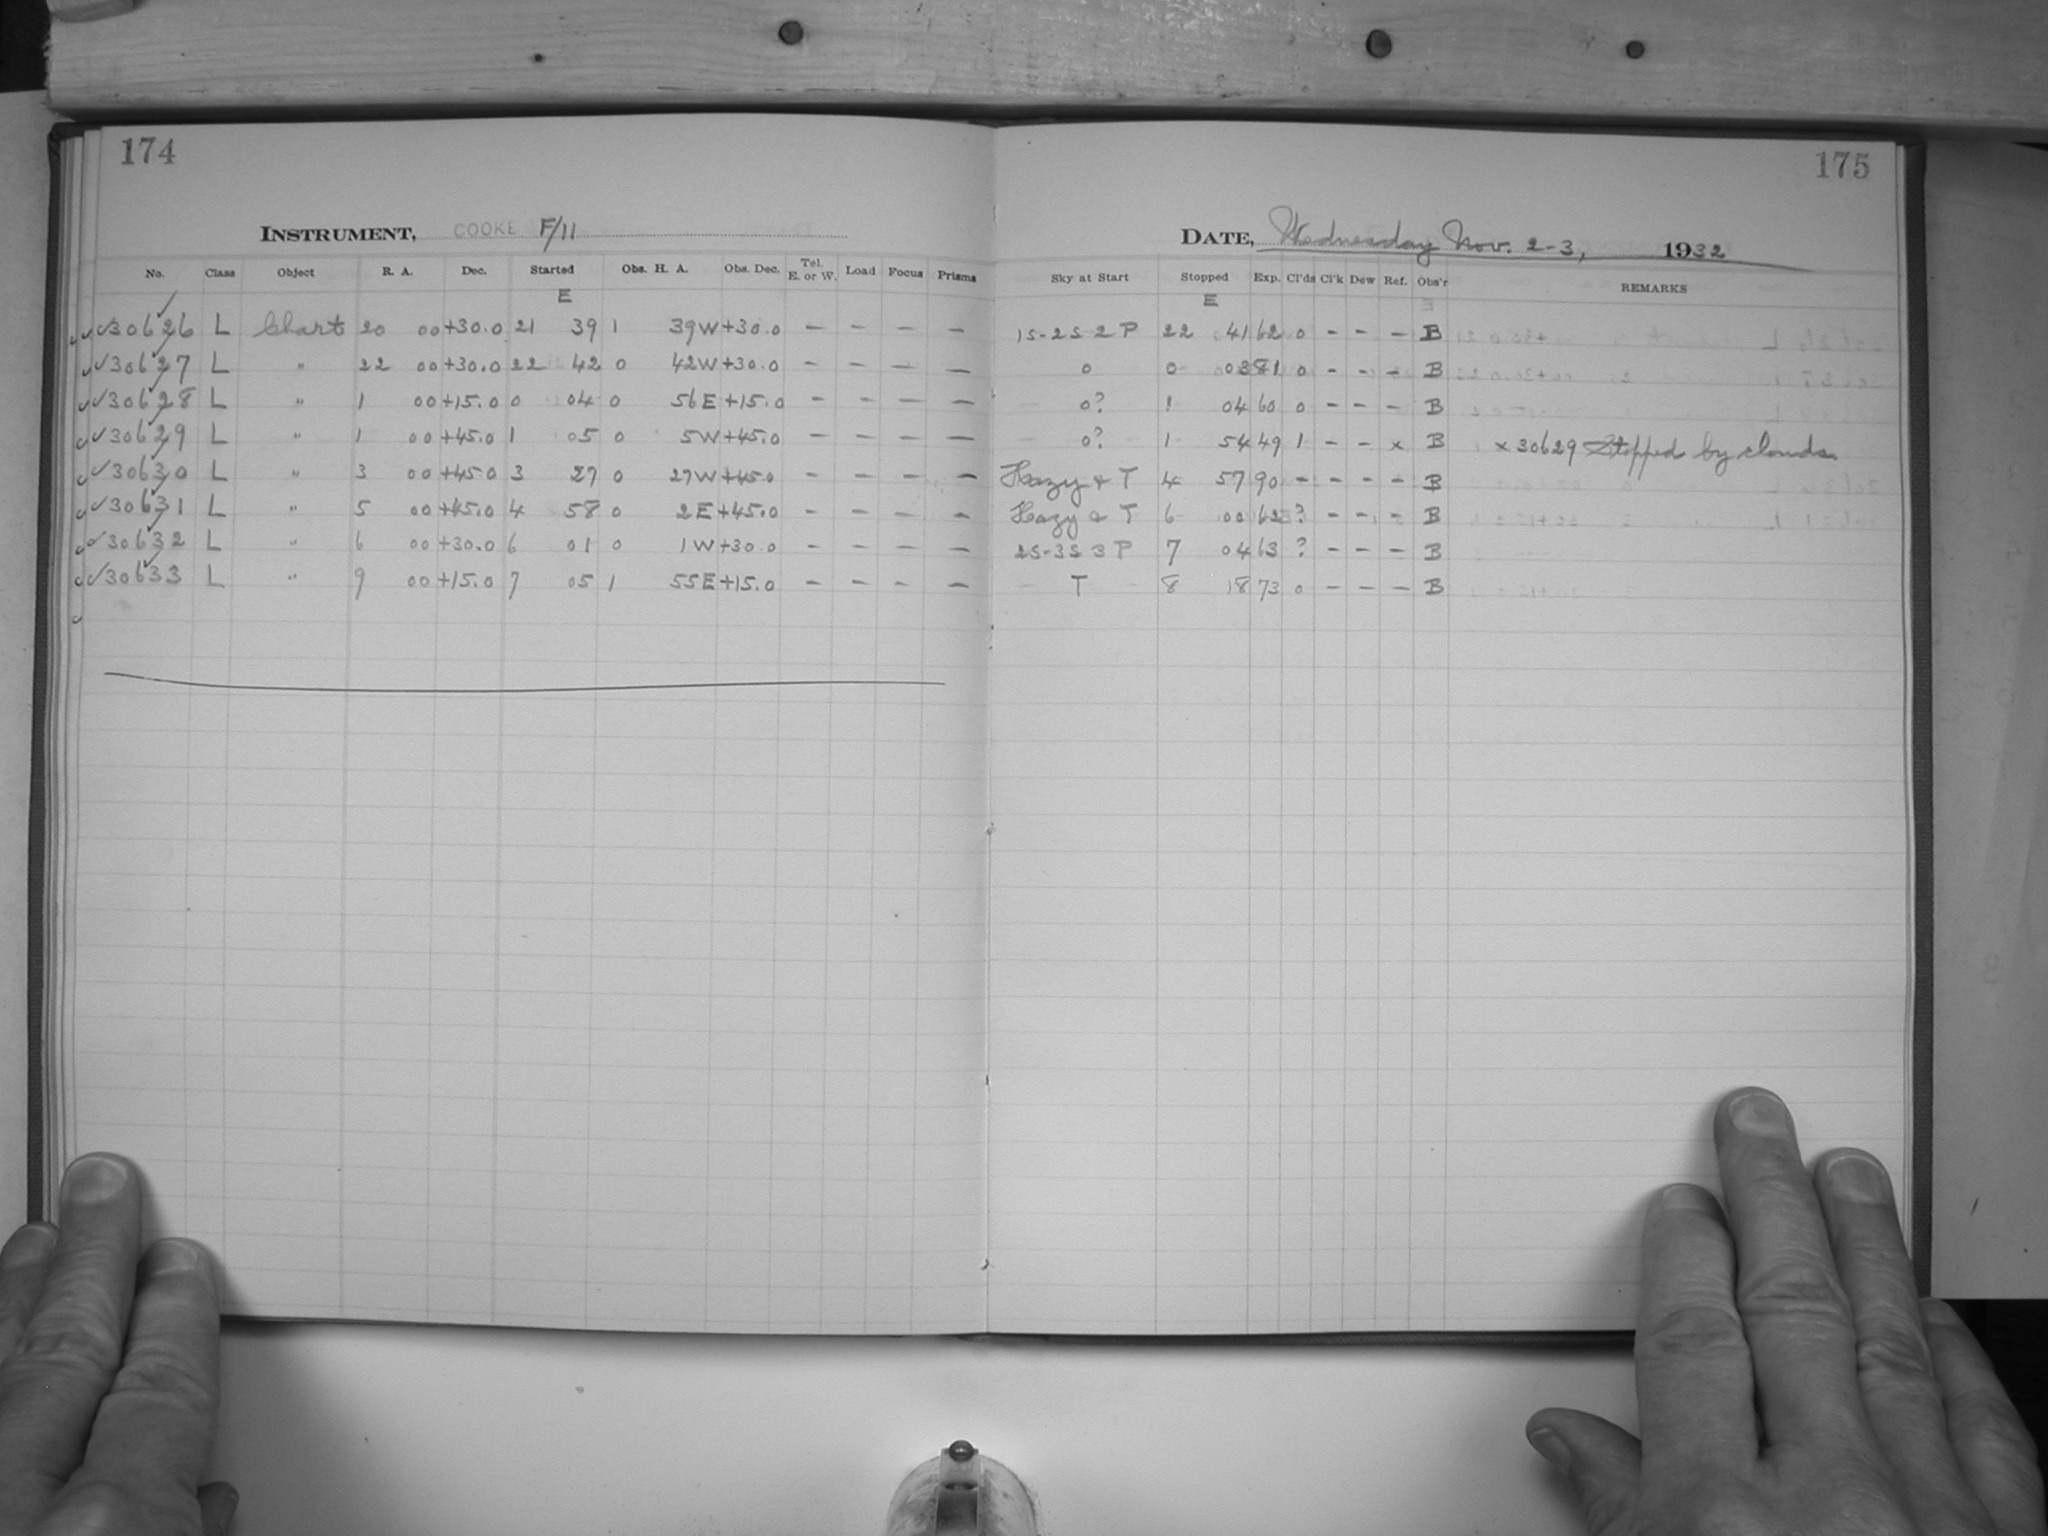 174
INSTRUMENT, COOKE F/11
No. Class Object R. A. Dec. Started Obs. H. A. Obs. Dec. Tel. E. or W. Load Focus Prisms
E
30626 L Chart 20 00 +30.0 21 39 1 39W +30.0 – – – –
30627 L " 22 00 +30.0 22 42 0 42W +30.0 – – – –
30628 L " 1 00 +15.0 0 04 0 56E +15.0 – – – –
30629 L " 1 00 +45.0 1 05 0 5W +45.0 – – – –
30630 L " 3 00 +45.0 3 27 0 27W +45.0 – – – –
30631 L " 5 00 +45.0 4 58 0 2E +45.0 – – – –
30632 L " 6 00 +30.0 6 01 0 1W +30.0 – – – –
30633 L " 9 00 +15.0 7 05 1 55E +15.0 – – – –
175
DATE, Wednesday Nov. 2-3, 1932
Sky at Start Stopped Exp. Cl'ds Cl'k Dew Ref. Obs'r REMARKS
E
1S-2S 2 P 22 41 62 0 – – – B
0 0 03 81 0 – – – B
0? 1 04 60 0 – – – B
0? 1 54 49 1 – – x B x 30629 Stopped by clouds.
Hazy & T 4 57 90 – – – – B
Hazy & T 6 00 62 ? – – – B
2S-3S 3 P 7 04 63 ? – – – B
T 8 18 73 0 – – – B